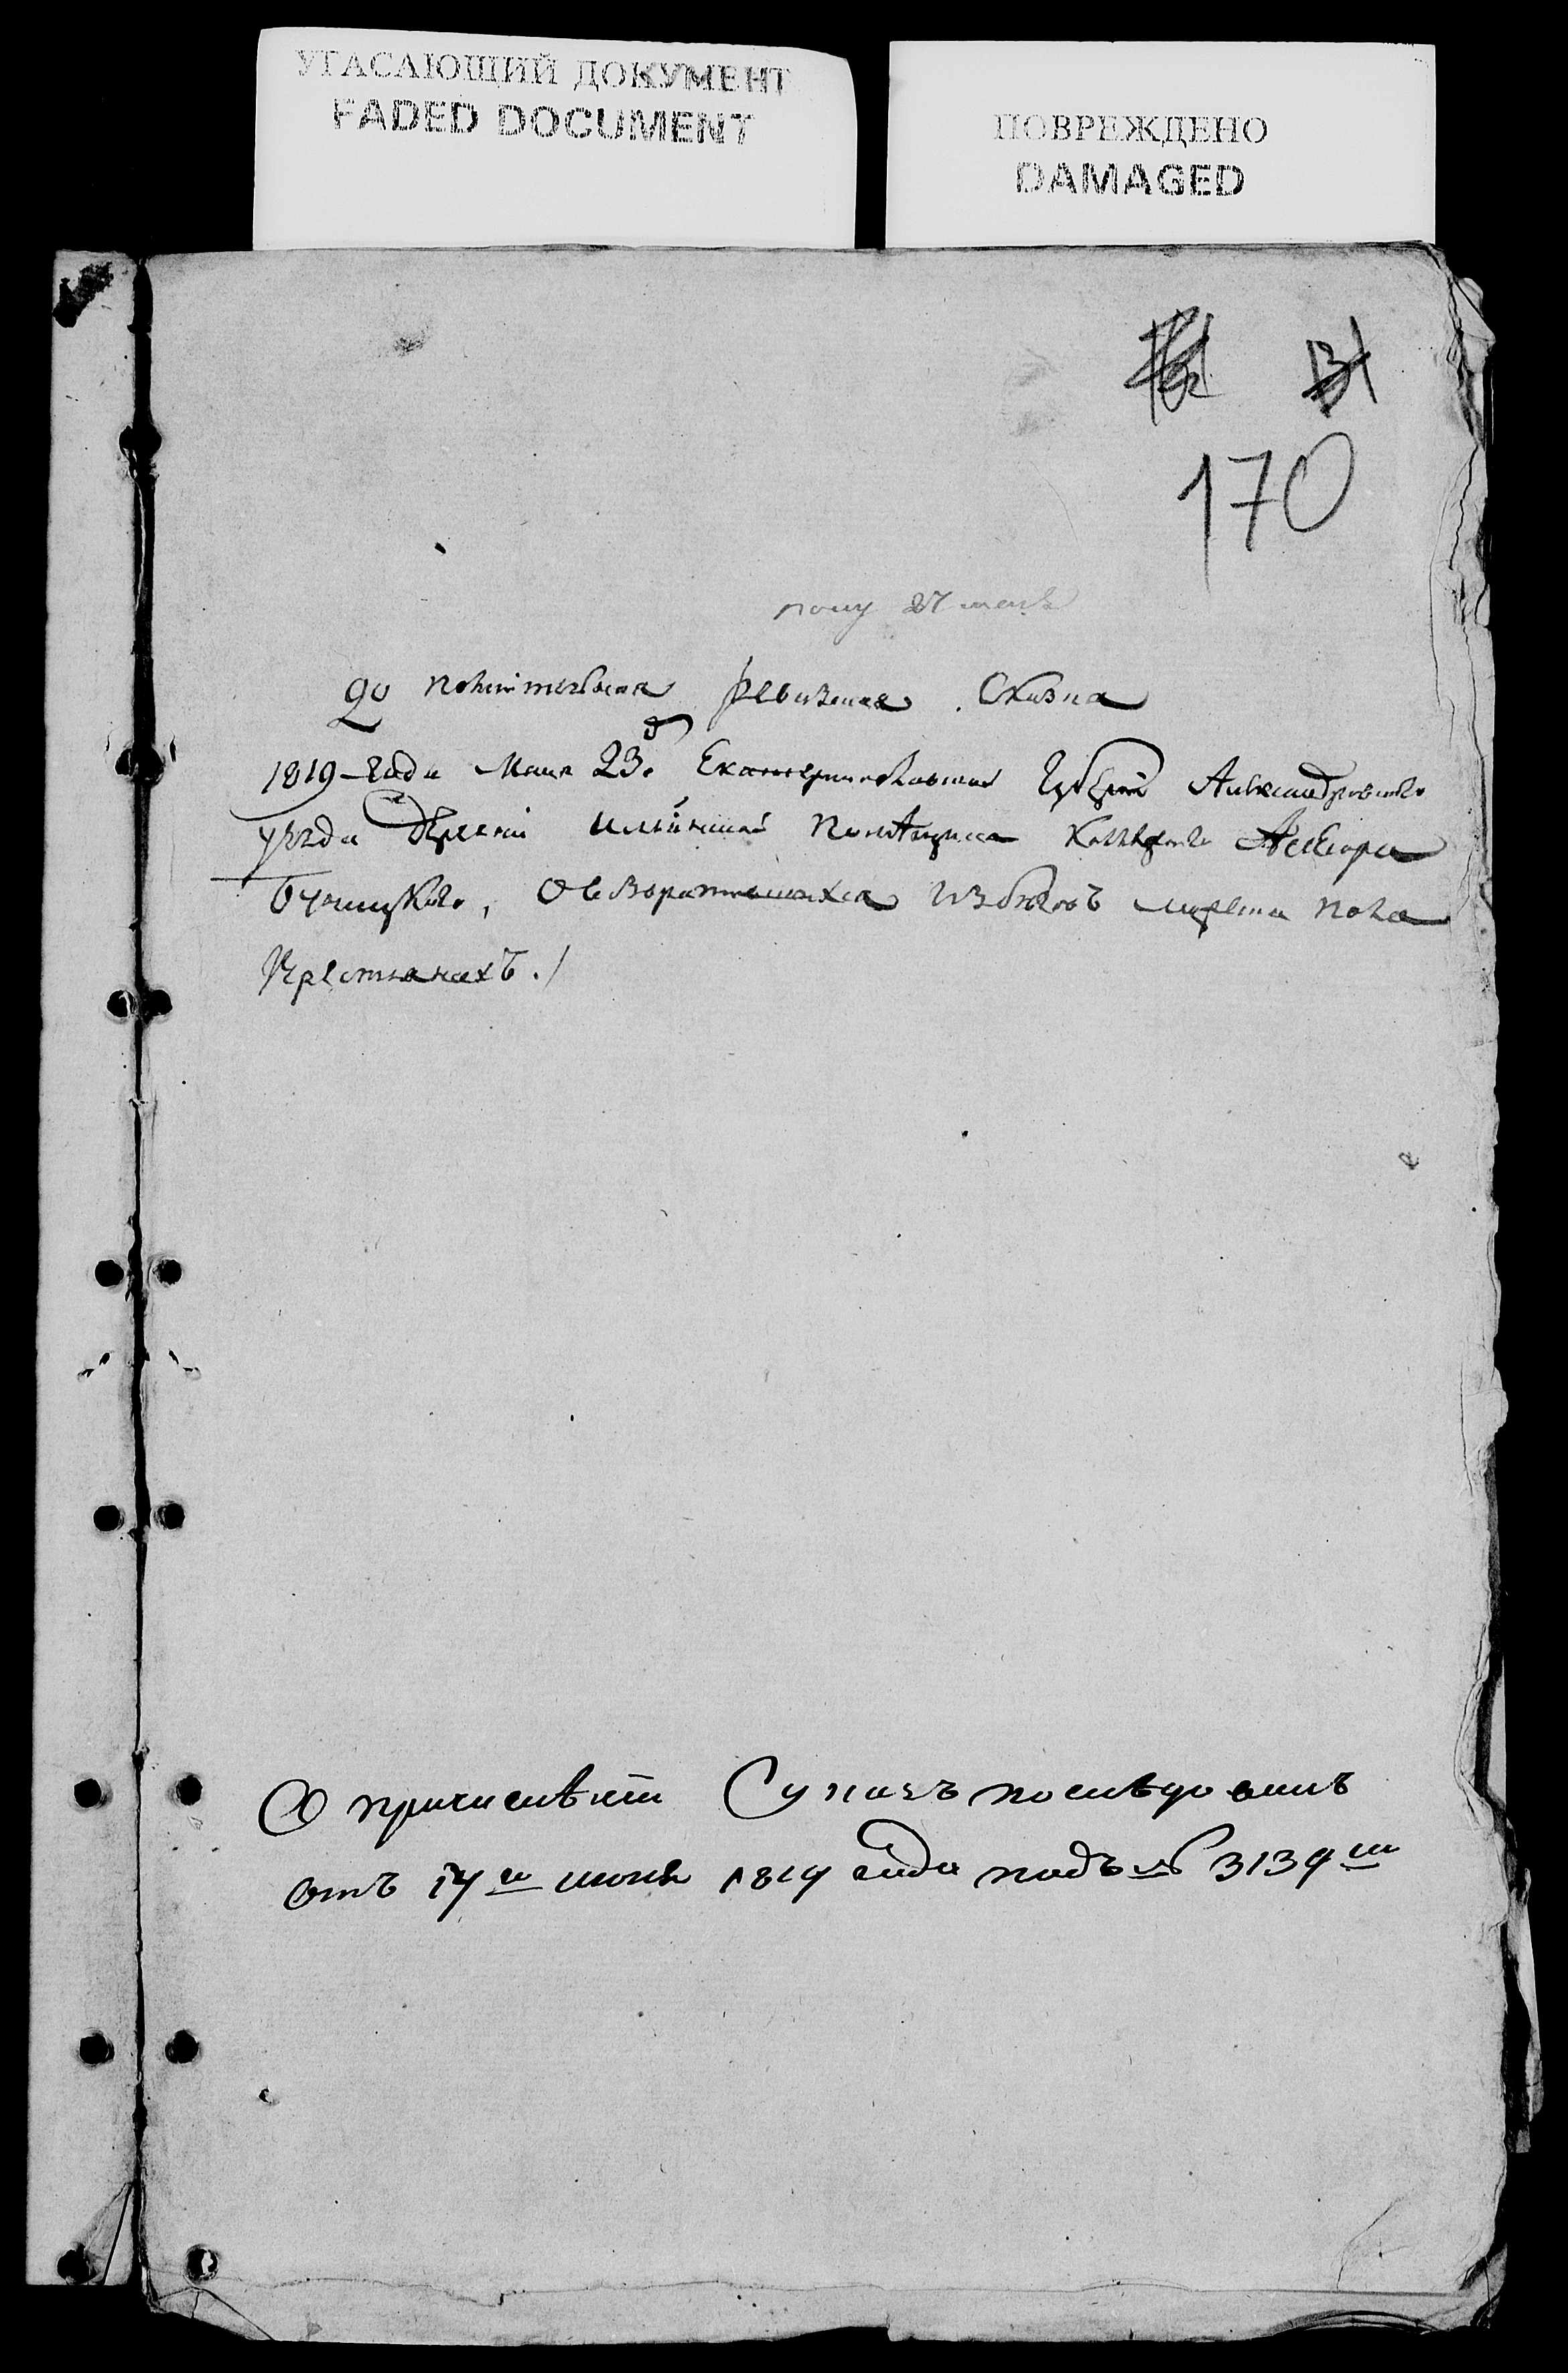 УГАСАЮЩИЙ ДОКУМЕНТ
FADED DOCUMENT
ПОВРЕЖДЕНО
DAMAGED
131
170
полу 27 мая
Дополнительная ревизская Сказка
1819 года мая 23го Екатеринославской Губернии Александровского
уезда деревни помещика Коллежского Асессора
Бучинского, О возвратившихся из бегов мужеска пола
Крестьянахъ./
О причислении Указъ последовалъ
отъ 17го июня 1819 года подъ № 3139м